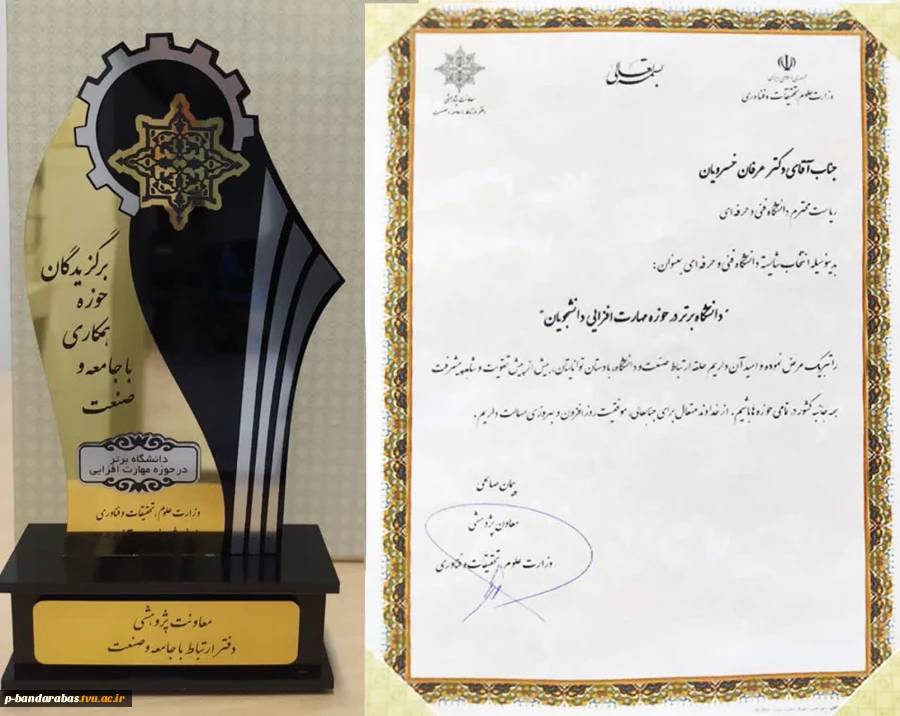 برگزیدگان
حوزه
همکاری
با جامعه و
صنعت
دانشگاه برتر
در حوزه مهارت افزایی
وزارت علوم، تحقیقات و فناوری
معاونت پژوهشی
دفتر ارتباط با جامعه و صنعت
p-bandarabas.tvu.ac.ir
بسمه تعالی
جمهوری اسلامی ایران
وزارت علوم، تحقیقات و فناوری
معاونت پژوهشی
دفتر ارتباط با جامعه و صنعت
جناب آقای دکتر عرفان خسرویان
ریاست محترم دانشگاه فنی و حرفه ای
بدینوسیله انتخاب شایسته دانشگاه فنی و حرفه ای بعنوان:
"دانشگاه برتر در حوزه مهارت افزایی دانشجویان"
را تبریک عرض نموده و امید آن داریم حلقه ارتباط صنعت و دانشگاه، با دستان توانایتان، بیش از پیش تقویت و شاهد پیشرفت
همه جانبه کشور در تمامی حوزه ها باشیم. از خداوند متعال برای جنابعالی، موفقیت روز افزون و بهروزی مسالت داریم.
پیمان صالحی
معاون پژوهشی
وزارت علوم، تحقیقات و فناوری